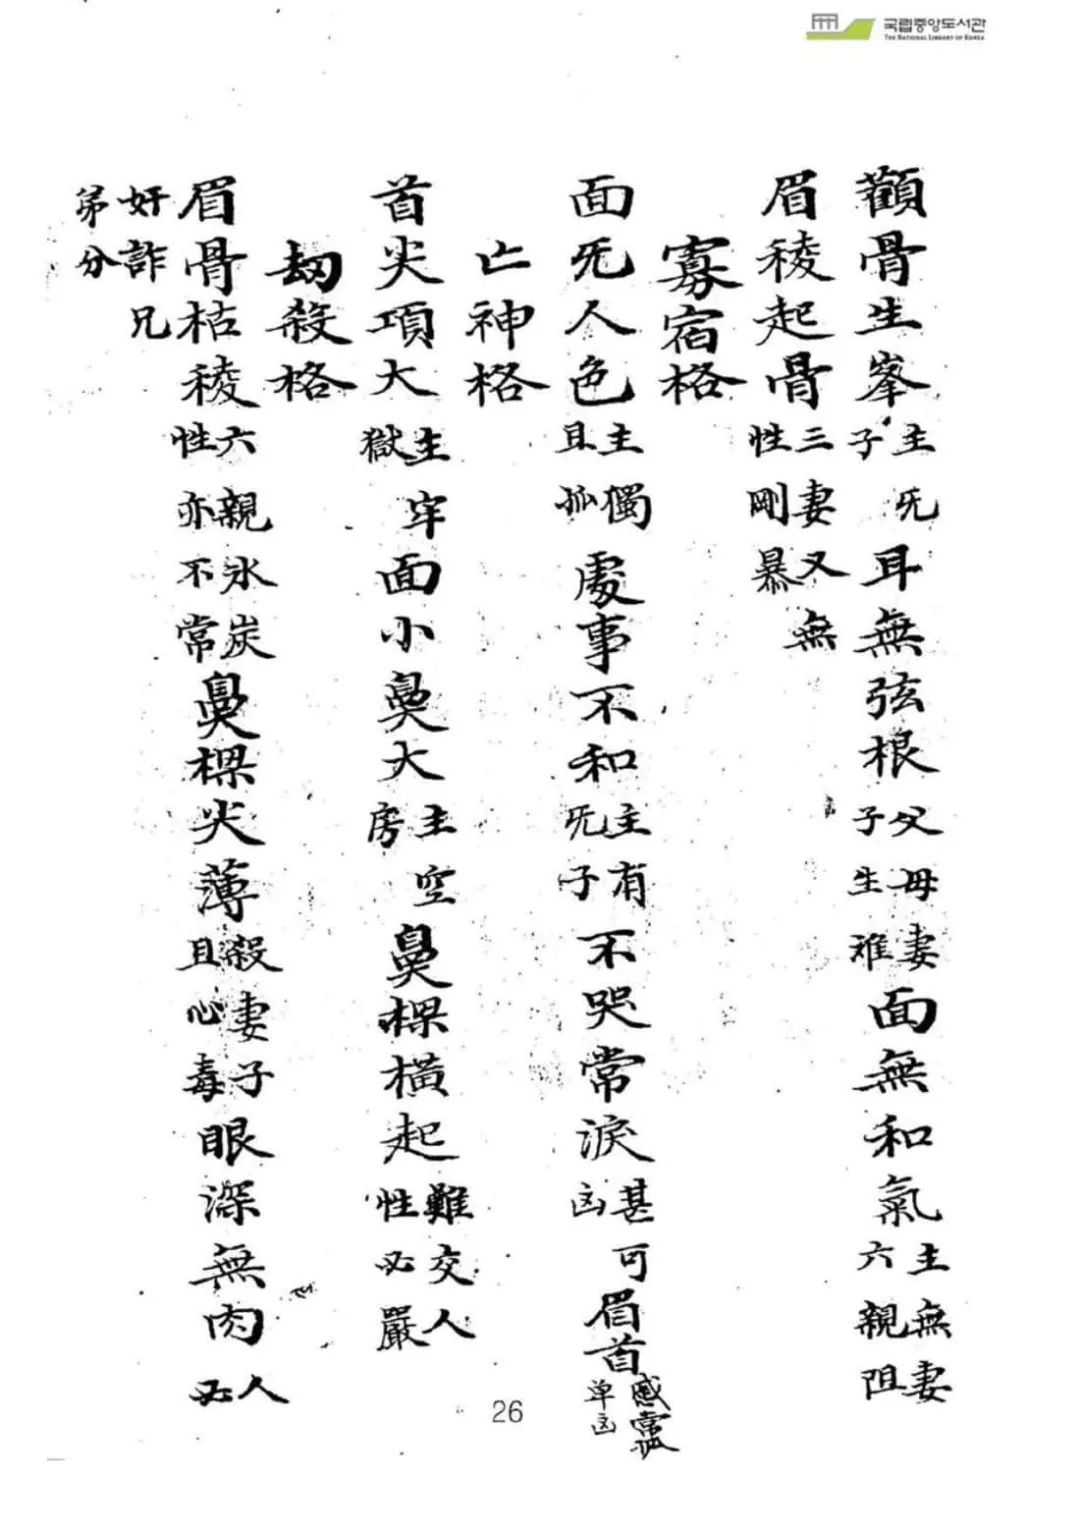 국립중앙도서관
THE NATIONAL LIBRARY OF KOREA
顴骨生峯主旡子耳無弦根父母妻子生难面無和氣主無妻六親阻
眉稜起骨三妻又無性剛暴
寡宿格
面旡人色主獨且孤處事不和主有旡子不哭常淚甚可凶眉首慼常孤单凶
亡神格
首尖項大主牢獄面小鼻大主空房鼻樑橫起難交人性必嚴
劫殺格
眉骨枯稜六親氷炭性亦不常鼻樑尖薄殺妻子且心毒眼深無肉人必
奸詐兄弟分
26